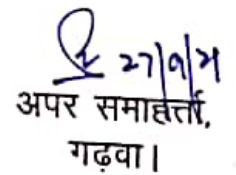 27/9/21
अपर समाहर्त्ता,
गढ़वा।